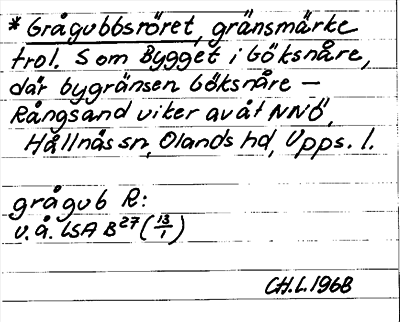 * Grågubbsröret, gränsmärke
trol. S om Bygget i Göksnåre,
där bygränsen Göksnåre –
Rångsand viker av åt NNÖ,
Hållnäs sn, Olands hd, Upps. l.
grågub R:
u.å. LSA B 27 (13/1)
CH.L. 1968